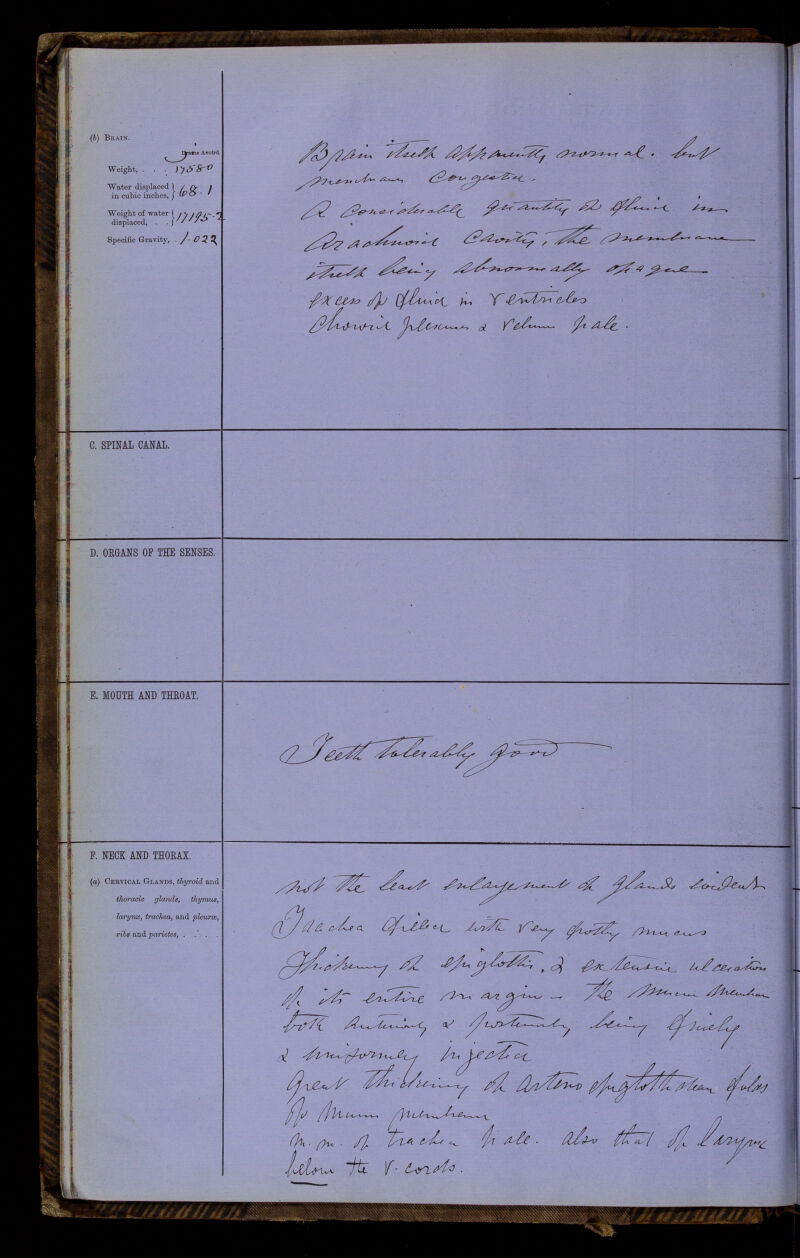 (b) BRAIN.
Grains Avoird.
Weight, . . . 17580
Water displaced in cubic inches, } 68.1
Weight of water displaced, . . } 17195.2
Specific Gravity, . 1.022
Brain itself apparently normal. but
membranes Congested.
A Considerable quantity of fluid in
Arachnoid Cavity, the membrane
itself being abnormally opaque
excess of fluid in Ventricles
Choroid plexuses & Velum pale.
C. SPINAL CANAL.
D. ORGANS OF THE SENSES.
E. MOUTH AND THROAT.
Teeth tolerably good
F. NECK AND THORAX.
(a) CERVICAL GLANDS, thyroid and
thoracic glands, thymus,
larynx, trachea, and pleuræ,
ribs and parietes, . . . .
not the least enlargement of glands evident
Trachea filled with very frothy mucus
Thickening of epiglottis, & extensive ulceration
of its entire margin - the mucous membrane
both anteriorly & posteriorly being finely
& uniformly injected
Great thickening of aryteno epiglottidean folds
of mucous membrane
m. m. of trachea pale. also that of larynx
below the V. cords.